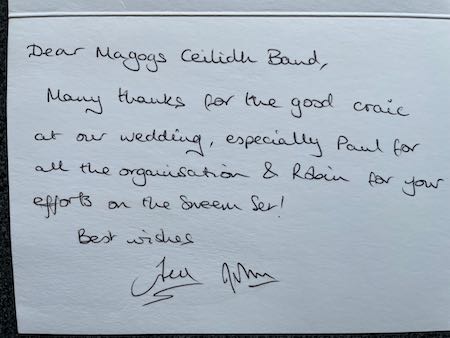 Dear Magogs Ceilidh Band,
Many thanks for the good craic
at our wedding, especially Paul for
all the organisation & Robin for your
efforts on the Sneem Set!
Best wishes
John